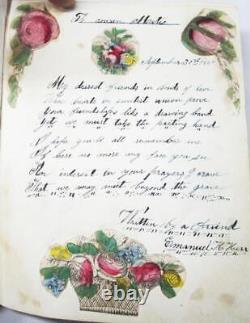 September 30th
My dearest friends in bonds of love
Whose hearts in sweetest union prove
Your friendship's like a drawing band
Yet we must take the parting hand
I hope you'll all remember me
If here no more my face you see
interest in your prayers I crave
That we may meet beyond the grave
Written by a friend
Emanuel H.